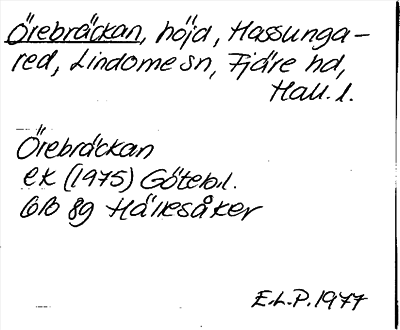 Örebräckan, höjd, Hassunga-
red, Lindome sn, Fjäre hd,
Hall. l.
Örebräckan
ek (1975) Götebl.
6B 8g Hällesåker
E.L.P. 1977